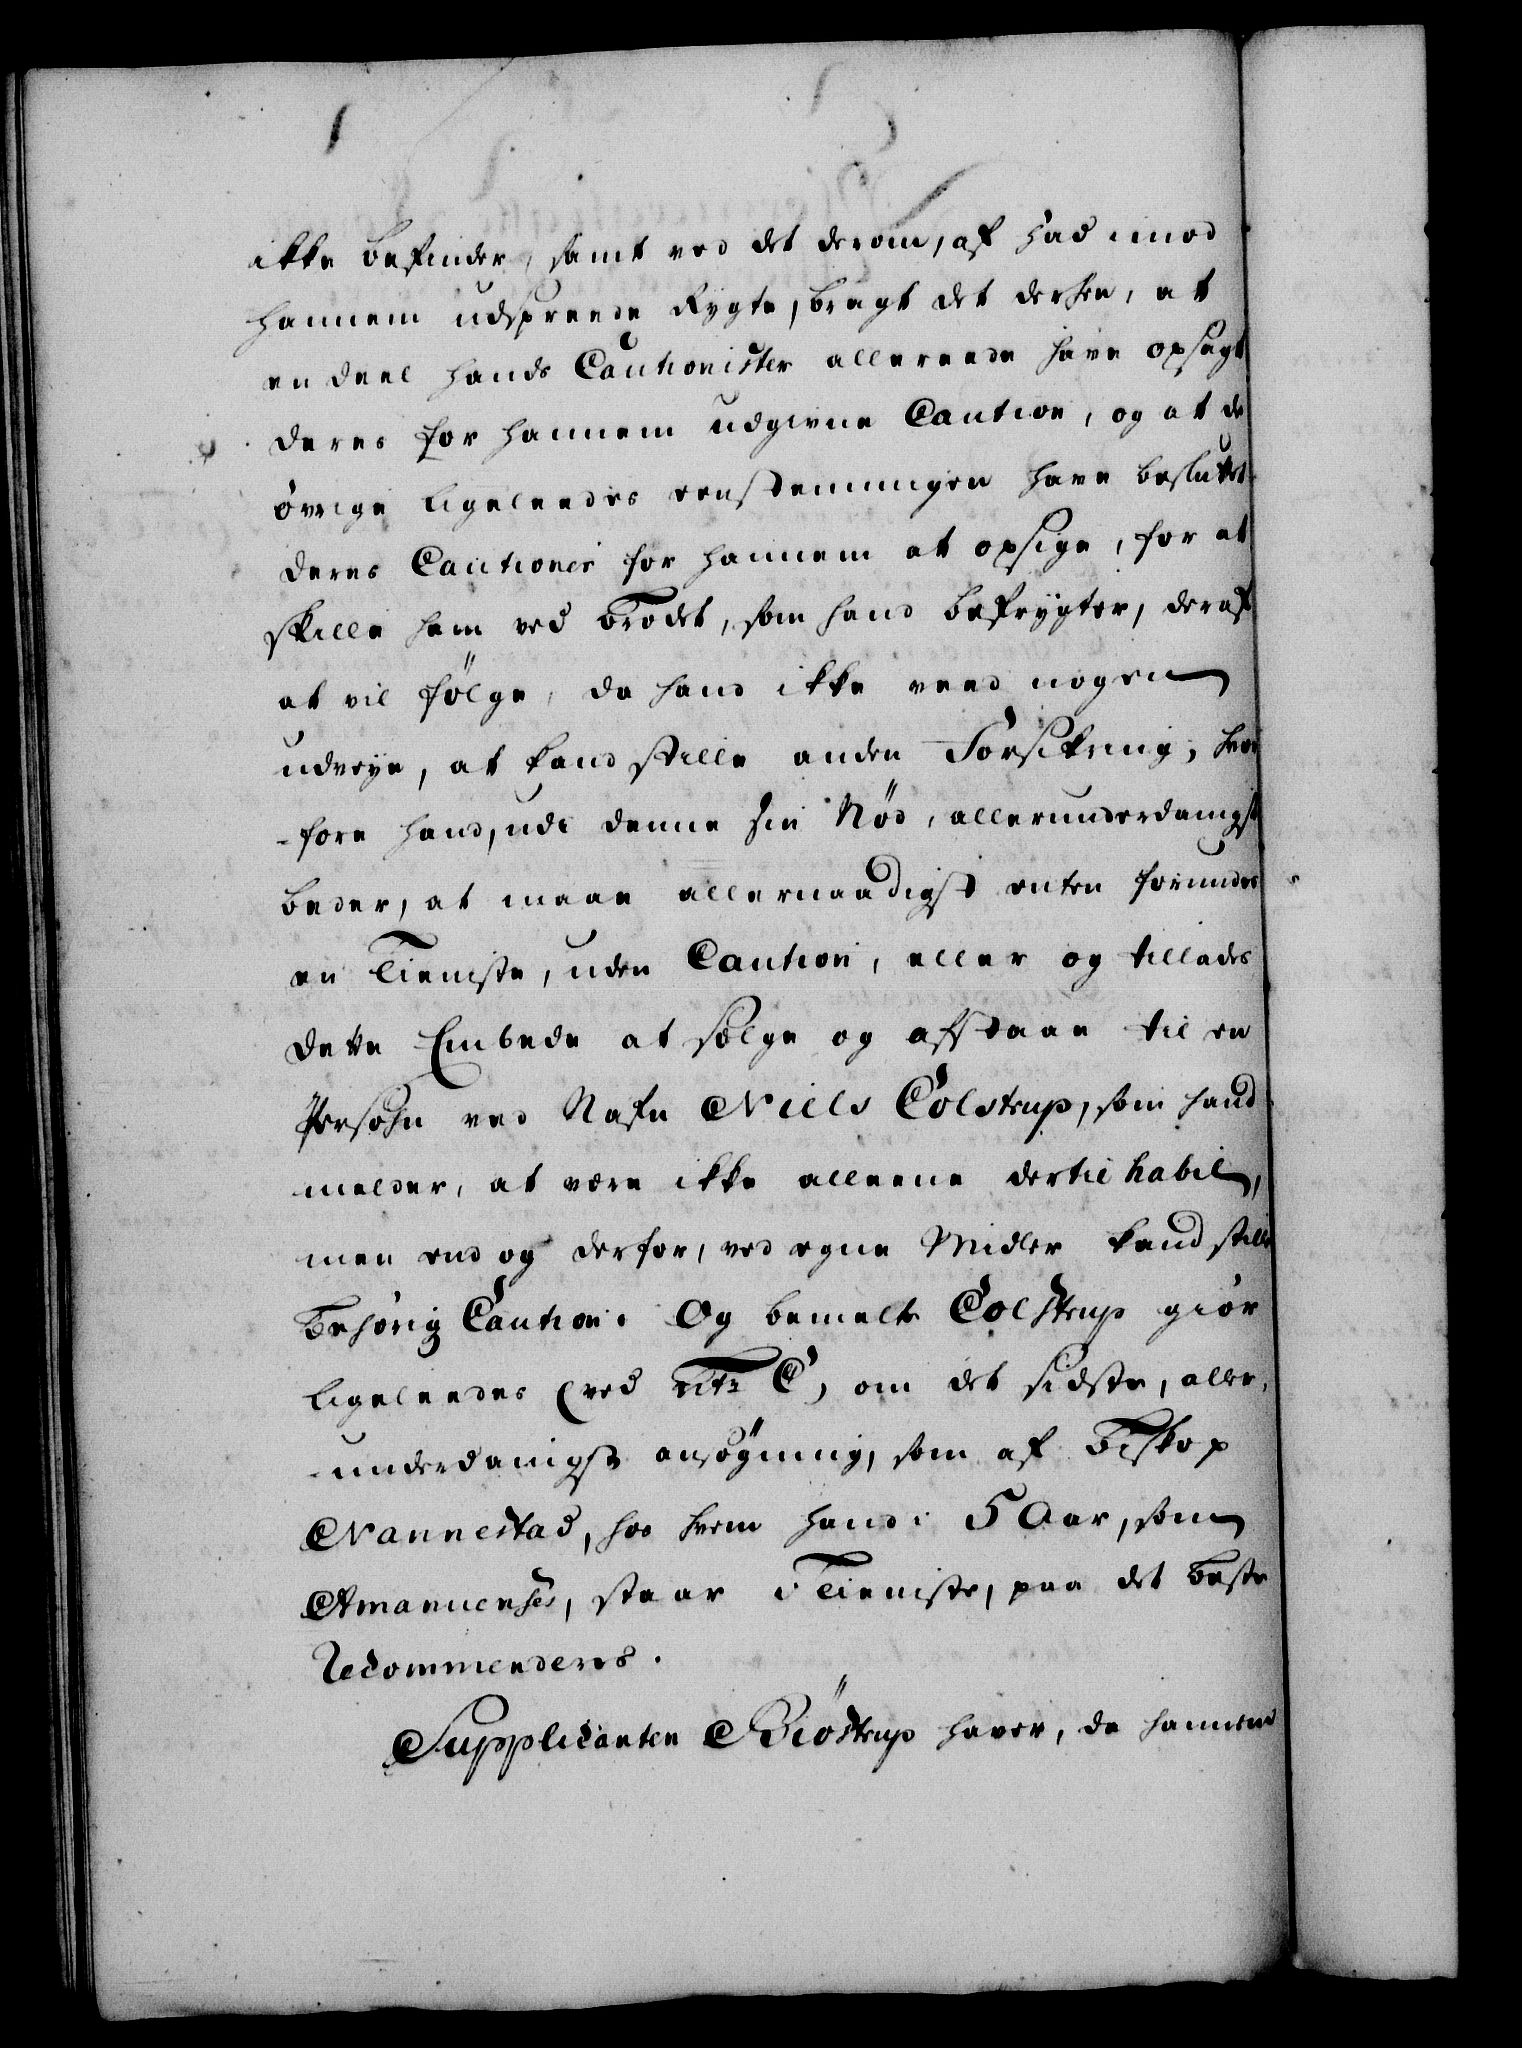 ikke befinder, samt ved det derom, af had imod
hannem udspreede Rygte, bragt det derhen, at
en deel hands Cautionister allereede have opsagt
deres for hannem udgivne Caution, og at de
övrige ligeleedes eenstemmigen have besluttet
deres Cautioner for hannem at opsige, for at
skille ham ved Brödet, som hand befrygter, deraf
at vil fölge, da hand ikke veed nogen
udveye, at kand stille anden Forsikring; hvor
-fore hand, udi denne sin Nöd, allerunderdanigst
beder, at maae allernaadigst enten forundes
en Tieniste, uden Caution, eller og tillades
dette Embede at sælge og afstaae til en
Persohn ved Nafn Niels Colstrup, som hand
melder, at være ikke alleene dertil habil,
men end og derfor, ved egne Midler kand stille
behörig Caution. Og bemelte Colstrup giör
ligeleedes (ved Litr C) om det sidste, aller-
-underdanigst ansögning, som af Biskop
Nannestad, hos hvem hand i 5 Aar, som
Amanuensis, staar i Tieniste, paa det beste
Recommenderes.
Supplicanten Biöstrup haver, da hannem